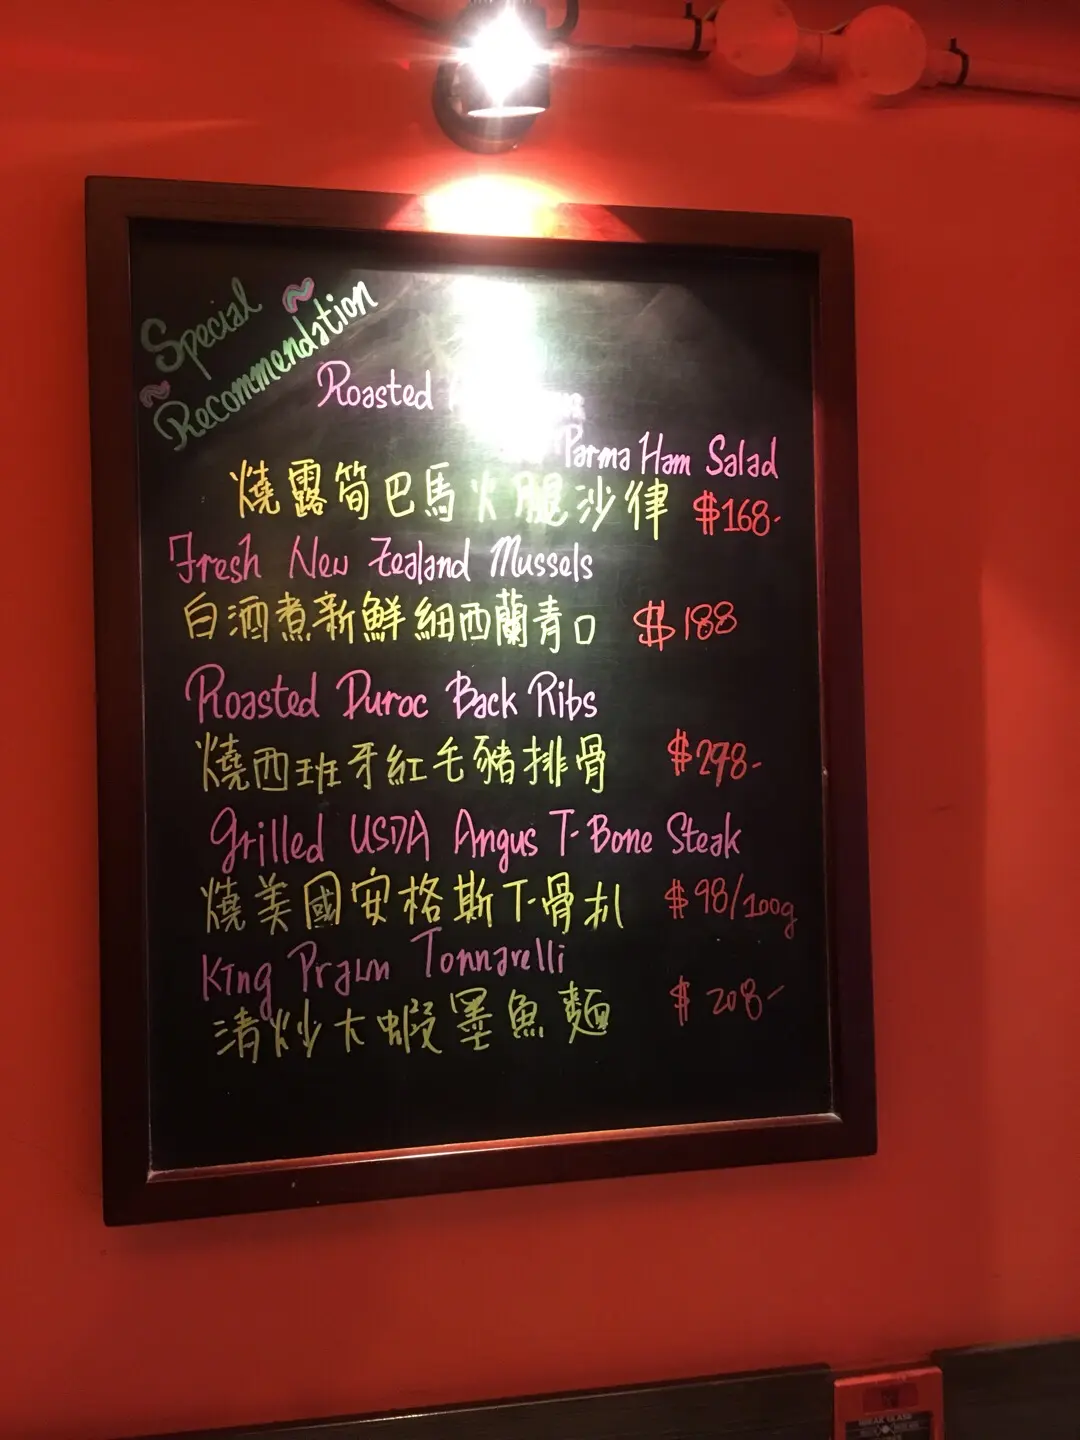 Special
Recommendation
Roasted
Parma Ham Salad
燒露筍巴馬火腿沙律 $168-
Fresh New Zealand Mussels
白酒煮新鮮細西蘭青口 $188
Roasted Duroc Back Ribs
燒西班牙紅毛豬排骨 $298-
Grilled USDA Angus T-Bone Steak
燒美國安格斯T骨扒 $98/100g
King Prawn Tonnarelli
清炒大蝦墨魚麵 $208-